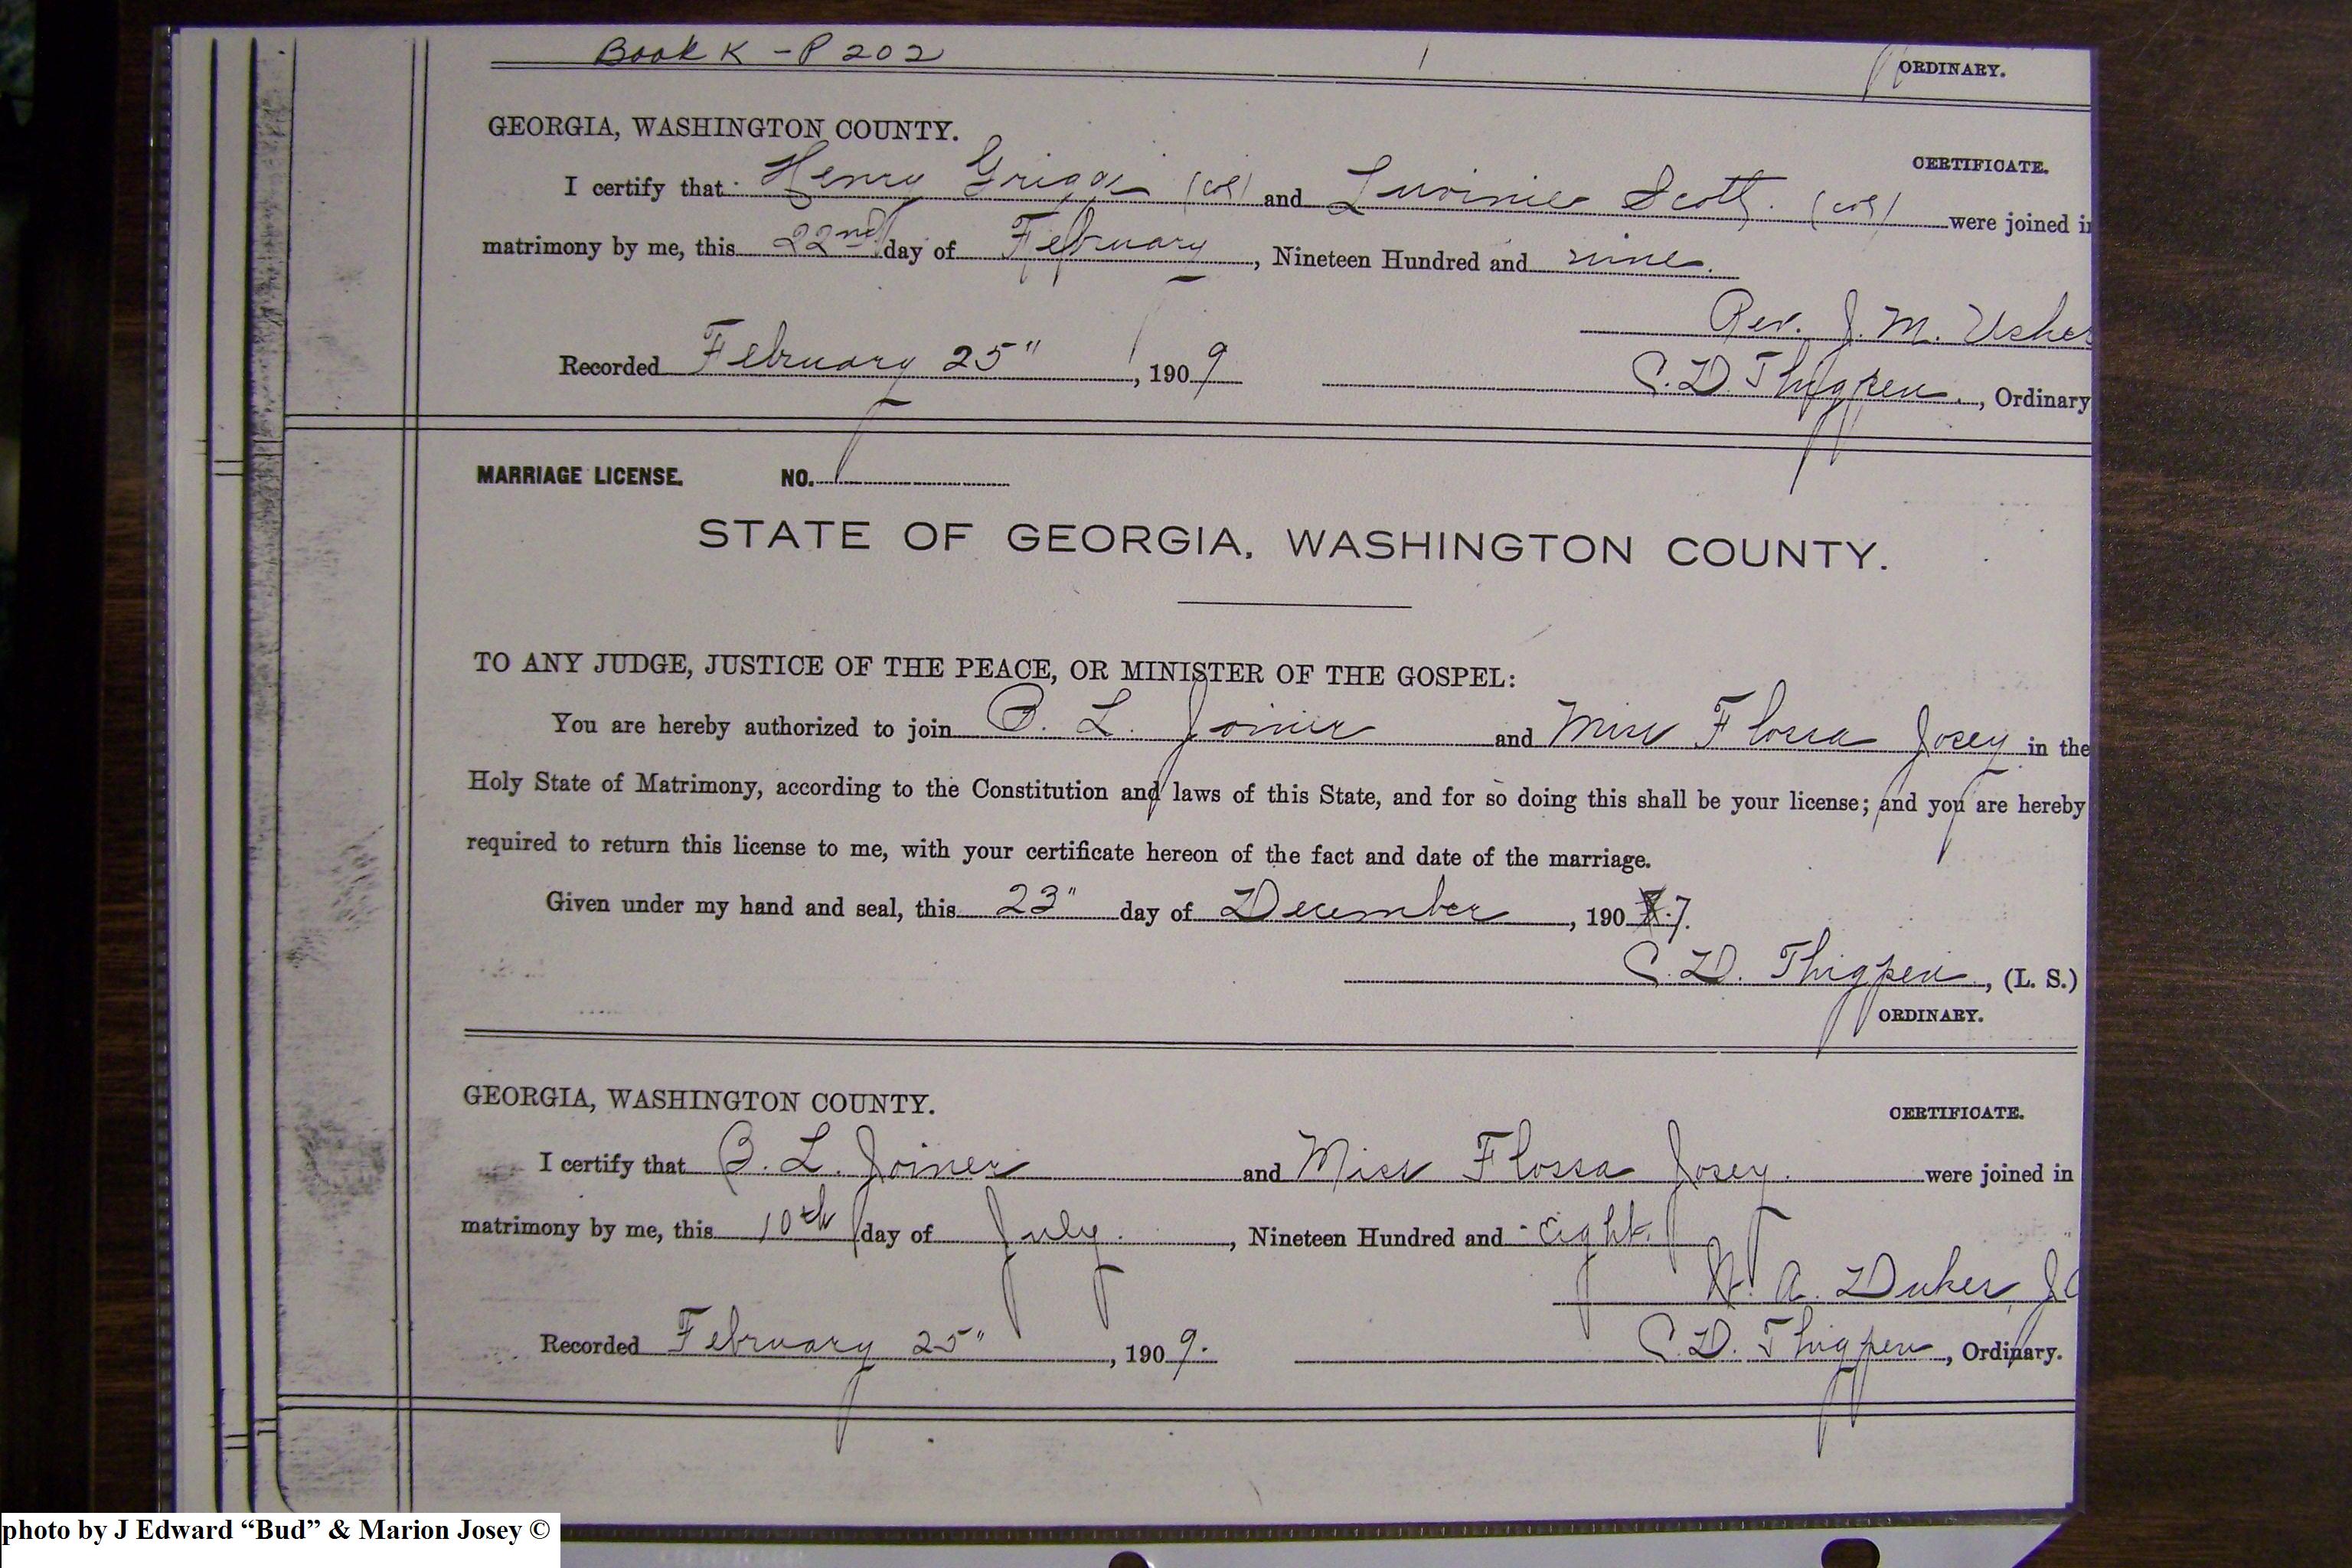 Book K - P 202
ORDINARY.
GEORGIA, WASHINGTON COUNTY.
CERTIFICATE.
I certify that Henry Griggs (col) and Luvinie Scott. (col) were joined in
matrimony by me, this 22nd day of February, Nineteen Hundred and nine.
Rev. J. M. Usher
Recorded February 25", 1909 C. D. Thigpen, Ordinary
MARRIAGE LICENSE. NO.
STATE OF GEORGIA, WASHINGTON COUNTY.
TO ANY JUDGE, JUSTICE OF THE PEACE, OR MINISTER OF THE GOSPEL:
You are hereby authorized to join B. L. Joiner and Miss Flossa Josey in the
Holy State of Matrimony, according to the Constitution and laws of this State, and for so doing this shall be your license; and you are hereby
required to return this license to me, with your certificate hereon of the fact and date of the marriage.
Given under my hand and seal, this 23" day of December, 1907.
C. D. Thigpen, (L. S.)
ORDINARY.
GEORGIA, WASHINGTON COUNTY.
CERTIFICATE.
I certify that B. L. Joiner and Miss Flossa Josey. were joined in
matrimony by me, this 10th day of July. Nineteen Hundred and eight.
A. Dukes, J
Recorded February 25", 1909. C. D. Thigpen, Ordinary.
photo by J Edward “Bud” & Marion Josey ©